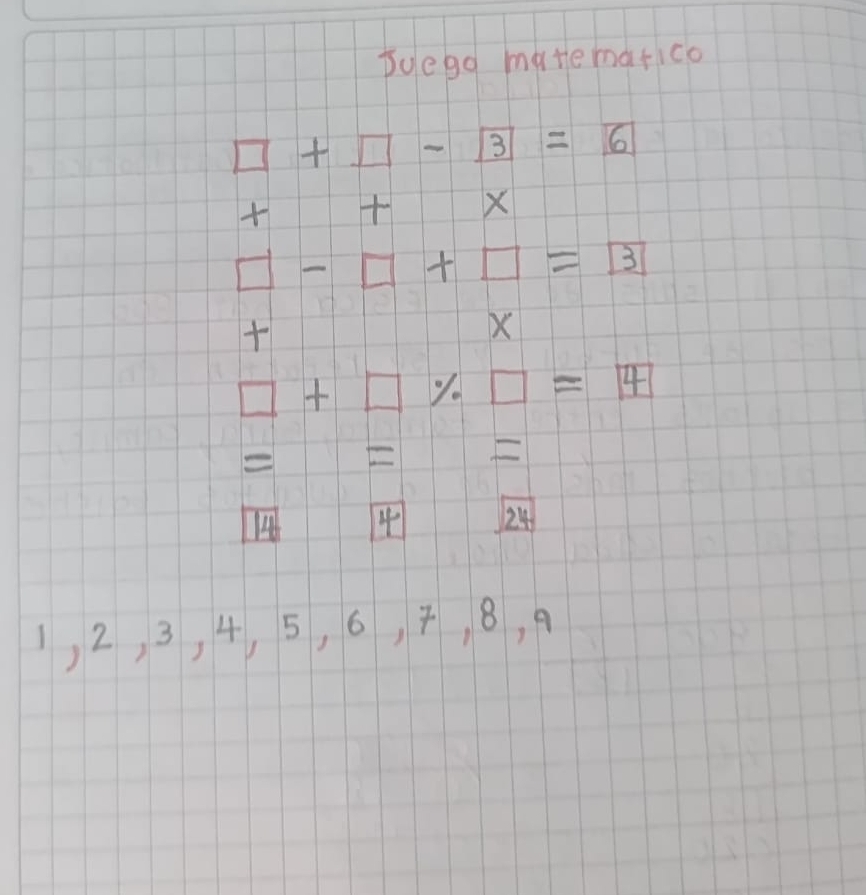 Juego matematico
□ + □ - 3 = 6
+ + x
□ - □ + □ = 3
+ x
□ + □ % □ = 4
= = =
14 4 24
1, 2, 3, 4, 5, 6, 7, 8, 9